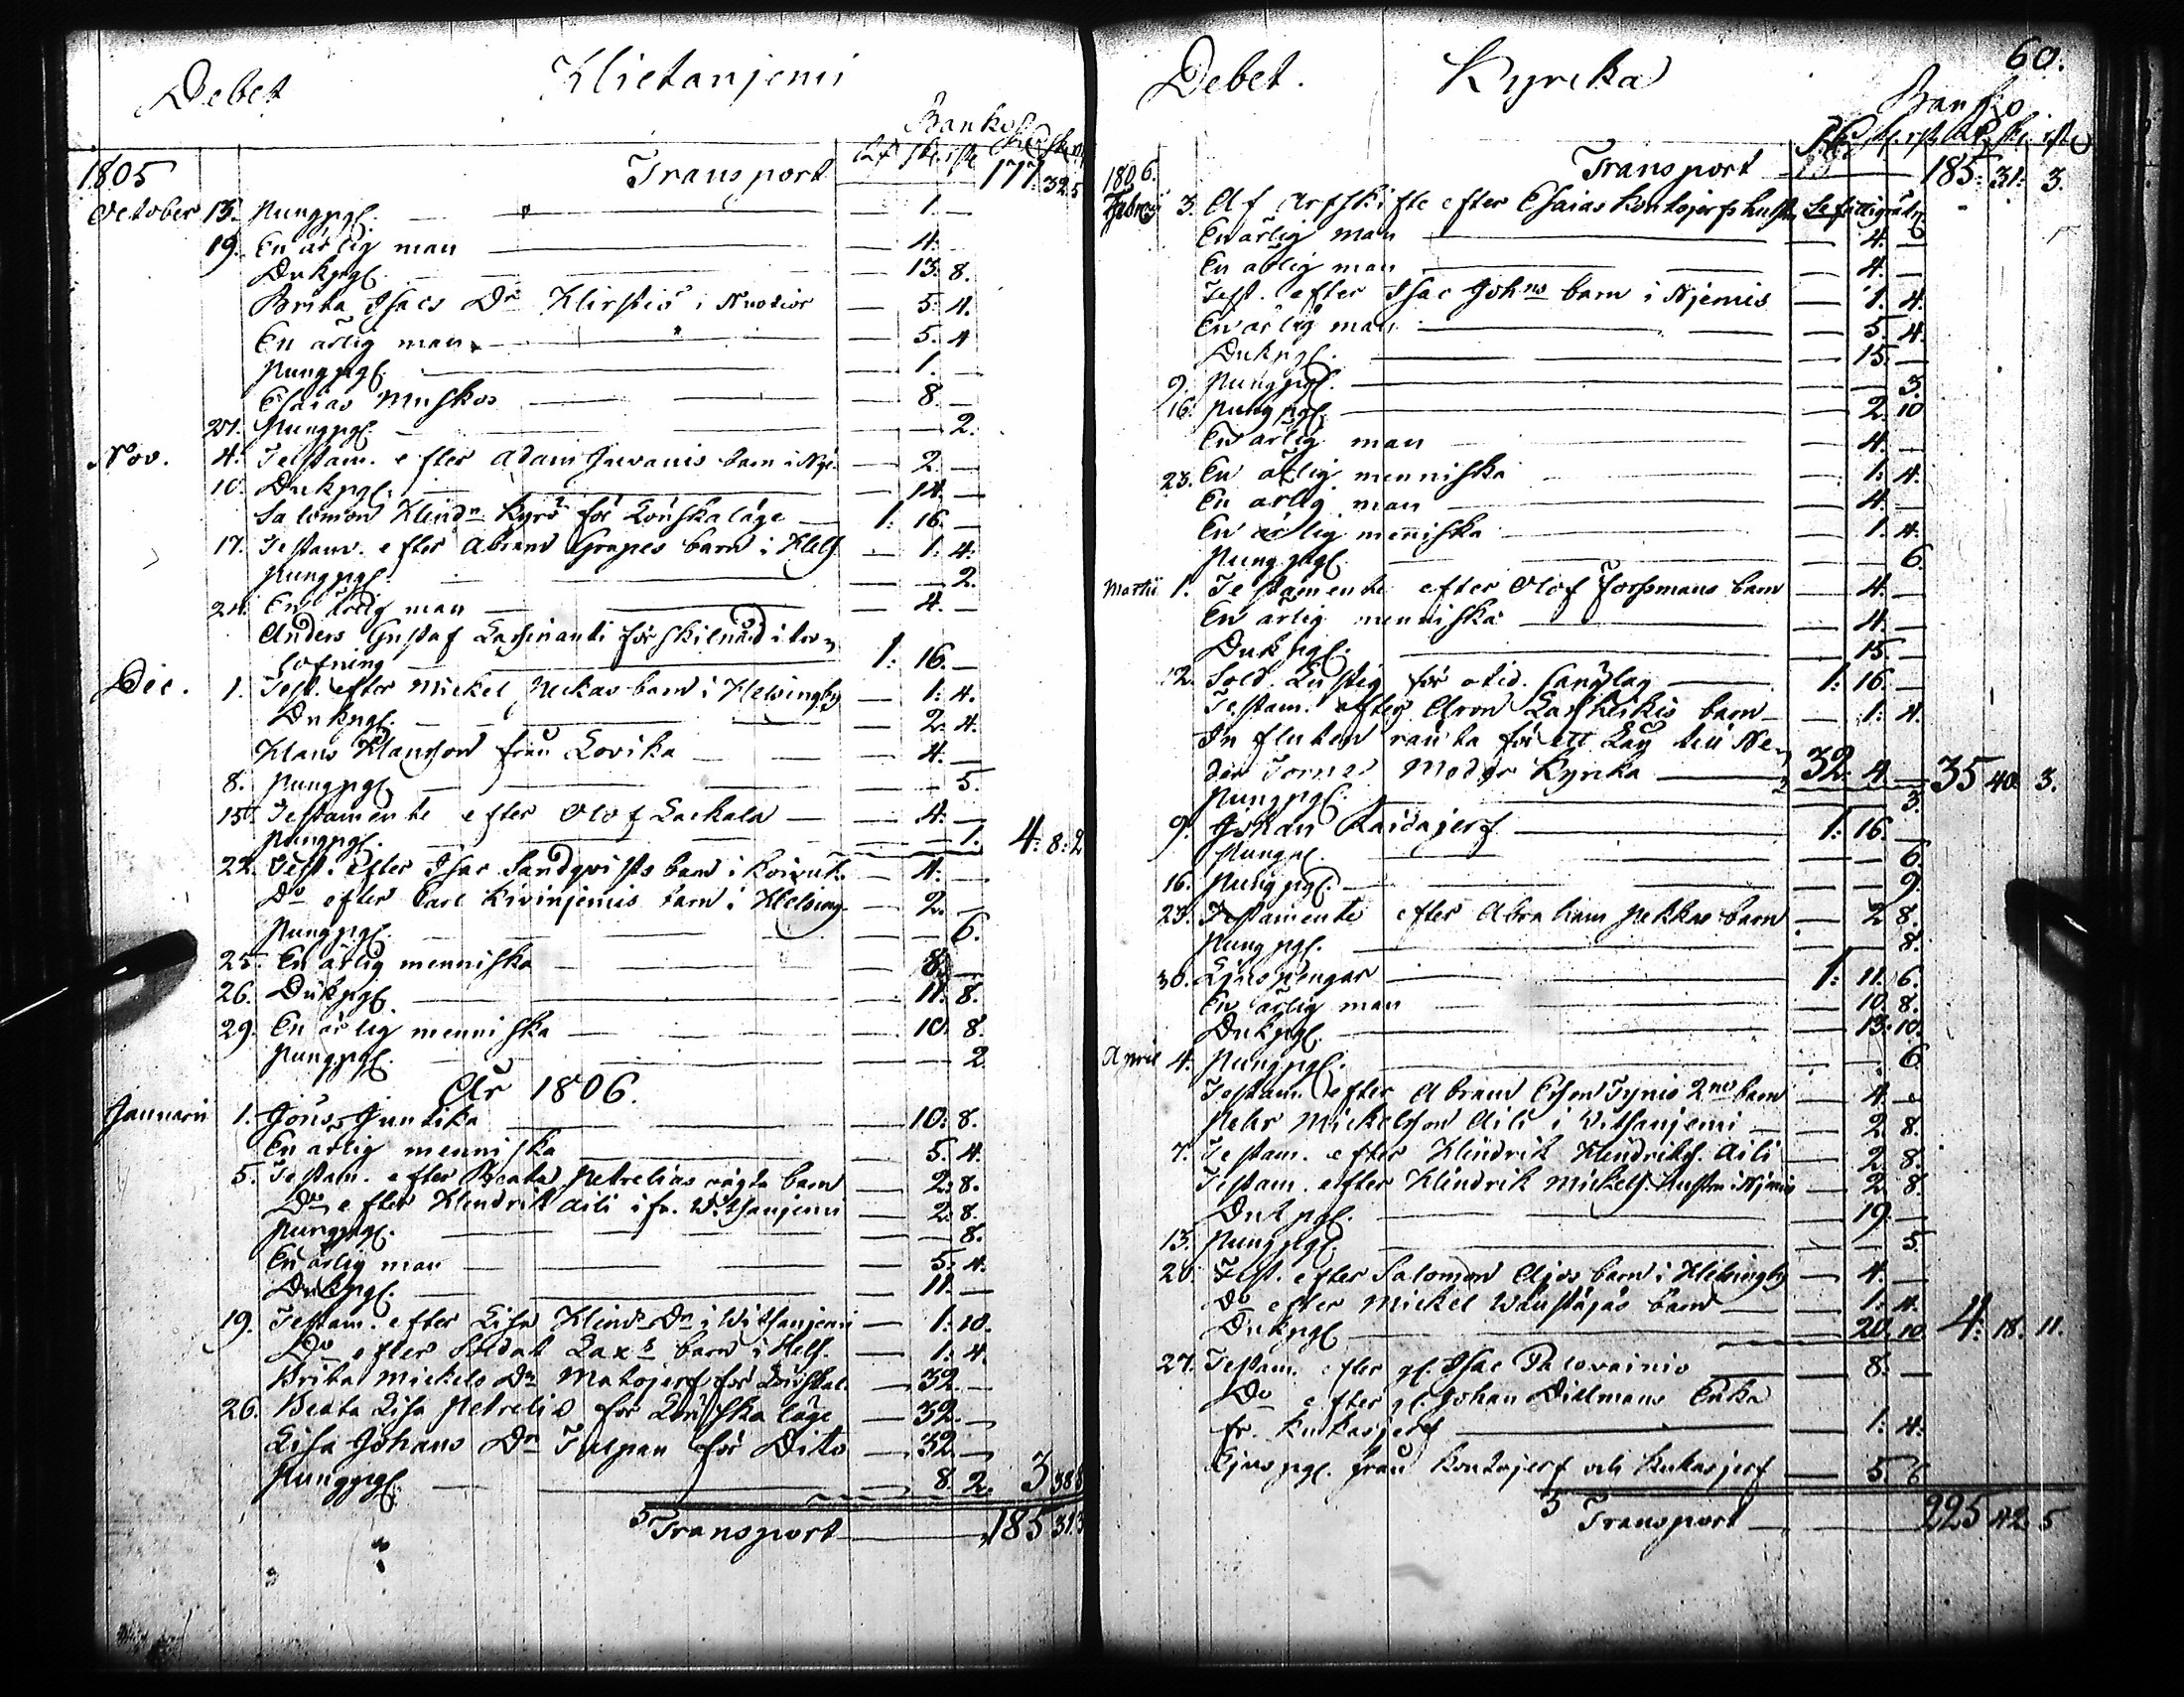 Debet Hietanjemi
Banko
Rd sk. rst. Rd sk. r
1805 Transport 177. 32. 5
October 13. Pungpgr. 1. —
19. En ärlig man — 4. —
Dukpgr. — 13. 8.
Brita Isacs Dr i — 5. 4.
En ärlig man — 5. 4
Pungpgr. — 1. —
Esaias Muskos — 8. —
27. Pungpgr. — — 2.
Nov. 4. Testam. efter Adam Juvanis barn i Nje. — 2. —
10. Dukpgr. — 14. —
Salomon Hindr. Kyrö för Lönskaläge 1: 16. —
17. Testam. efter Abram Grapes barn i Hels. — 1: 4.
Pungpgr. — — 2.
24. En ärlig man — 4. —
Anders Gustaf för skilnad i tro-
lofning 1: 16. —
Dec. 1. Test. efter Mickel Pekkas barn i Helsingby — 1: 4.
Dukpgr. — 2. 4.
Hans Hansson från Lovika — 4. —
8. Pungpgr. — — 5.
15. Testamente efter Olof Laukala — 4. —
Pungpgr. — — 1. 4: 8: 2
22. Test. efter Isac Sandqvists barn i Koivuk. — 4. —
Do efter Carl Kivinjemis barn i Helsing. — 2. —
Pungpgr. — — 6.
25. En ärlig menniska — 8. —
26. Dukpgr. — 11. 8.
29. En ärlig menniska — 10. 8.
Pungpgr. — — 2
År 1806.
Januarii 1. Jöns Juntika — 10: 8.
En ärlig menniska — 5. 4.
5. Testam. efter Beata Petrelias oägta barn — 2: 8.
Do efter Hendrik Aili ifr. Witsanjemi — 2. 8.
Pungpgr. — — 8.
En ärlig man — 5. 4.
Dukpgr. — 11. —
19. Testam. efter Lisa Hindr. Dr i Witsanjemi — 1. 10.
Do efter Soldat Lax's barn i Hels. — 1: 4.
Brita Mickels Dr Matojerf för Lönskal. — 32. —
26. Beata Lisa Petrelia för Lönskaläge — 32. —
Lisa Johans Dr Tulpan för Dito — 32 —
Pungpgr. — 8 2. 3 38 8
Transport 185 31. 3
60.
Debet. Kyrcka
Banko
1806. Transport 185: 31: 3.
Febr. 3. Af Arfskifte efter Esaias Kontojerfs hustru
En ärlig man — 4. —
En ärlig man — 4. —
Test. efter Isac Johns barn i Njemis — 1. 4.
En ärlig man — 5. 4.
Dukpgr. — 15. —
9. Pungpgr. — — 3.
16. Pungpgr. — 2. 10
En ärlig man — 4. —
23. En ärlig menniska — 1: 4.
En ärlig man — 4. —
En ärlig menniska — 1. 4.
Pungpgr. — — 6.
Martii 1. Testamente efter Olof Forssmans barn — 4. —
En ärlig menniska — 4. —
Dukpgr. — 15. —
2. Sold. Lustig för otid. sänglag 1: 16. —
Testam. efter Aron barn — 1: 4.
Influten ränta för ett Lån till Ne-
der Torneå Moder Kyrka 32. 4 — 35 40. 3.
Pungpgr. — — 3.
9. Johan Kaidajerf 1: 16. —
Pungpgr. — — 6.
16. Pungpgr. — — 9.
23. Testamente efter Abraham Pekkas barn — 2 8.
Pungpgr. — — 8.
30. Ljuspengar 1: 11. 6.
En ärlig man — 10 8.
Dukpgr. — 13. 10.
April 4. Pungpgr. — — 6
Testam. efter Abram Ersson Tynis 2ne barn — 4. —
Pehr Mickelsson Aili i Witsanjemi — 2. 8.
7. Testam. efter Hendrik Hendriks. Aili — 2 8.
Testam. efter Hendrik Mickels. hustru i Njemis — 2. 8.
Dukpgr. — 19. —
13. Pungpgr. — — 5.
20. Test. efter Salomon Ajos barn i Helsingby — 4. —
Do efter Mickel barn — 1: 4.
Dukpgr. — 20. 10 4: 18. 11.
27. Testam. efter gl. Isac Palovainio — 8. —
Do efter gl. Johan Dillmans Enka
fr. Kukasjerf — 1: 4.
Ljuspgr. från Kontojerf och Kukasjerf — 5 6
Transport 225 42 5